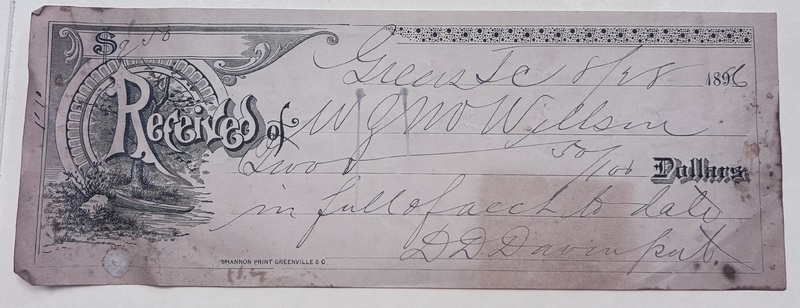 $ 2 50
Greers S C 8/28 1896
Received of W G M Willson
Two 50/100 Dollars
in full of acct to date
D D Davenport
SHANNON PRINT GREENVILLE S C